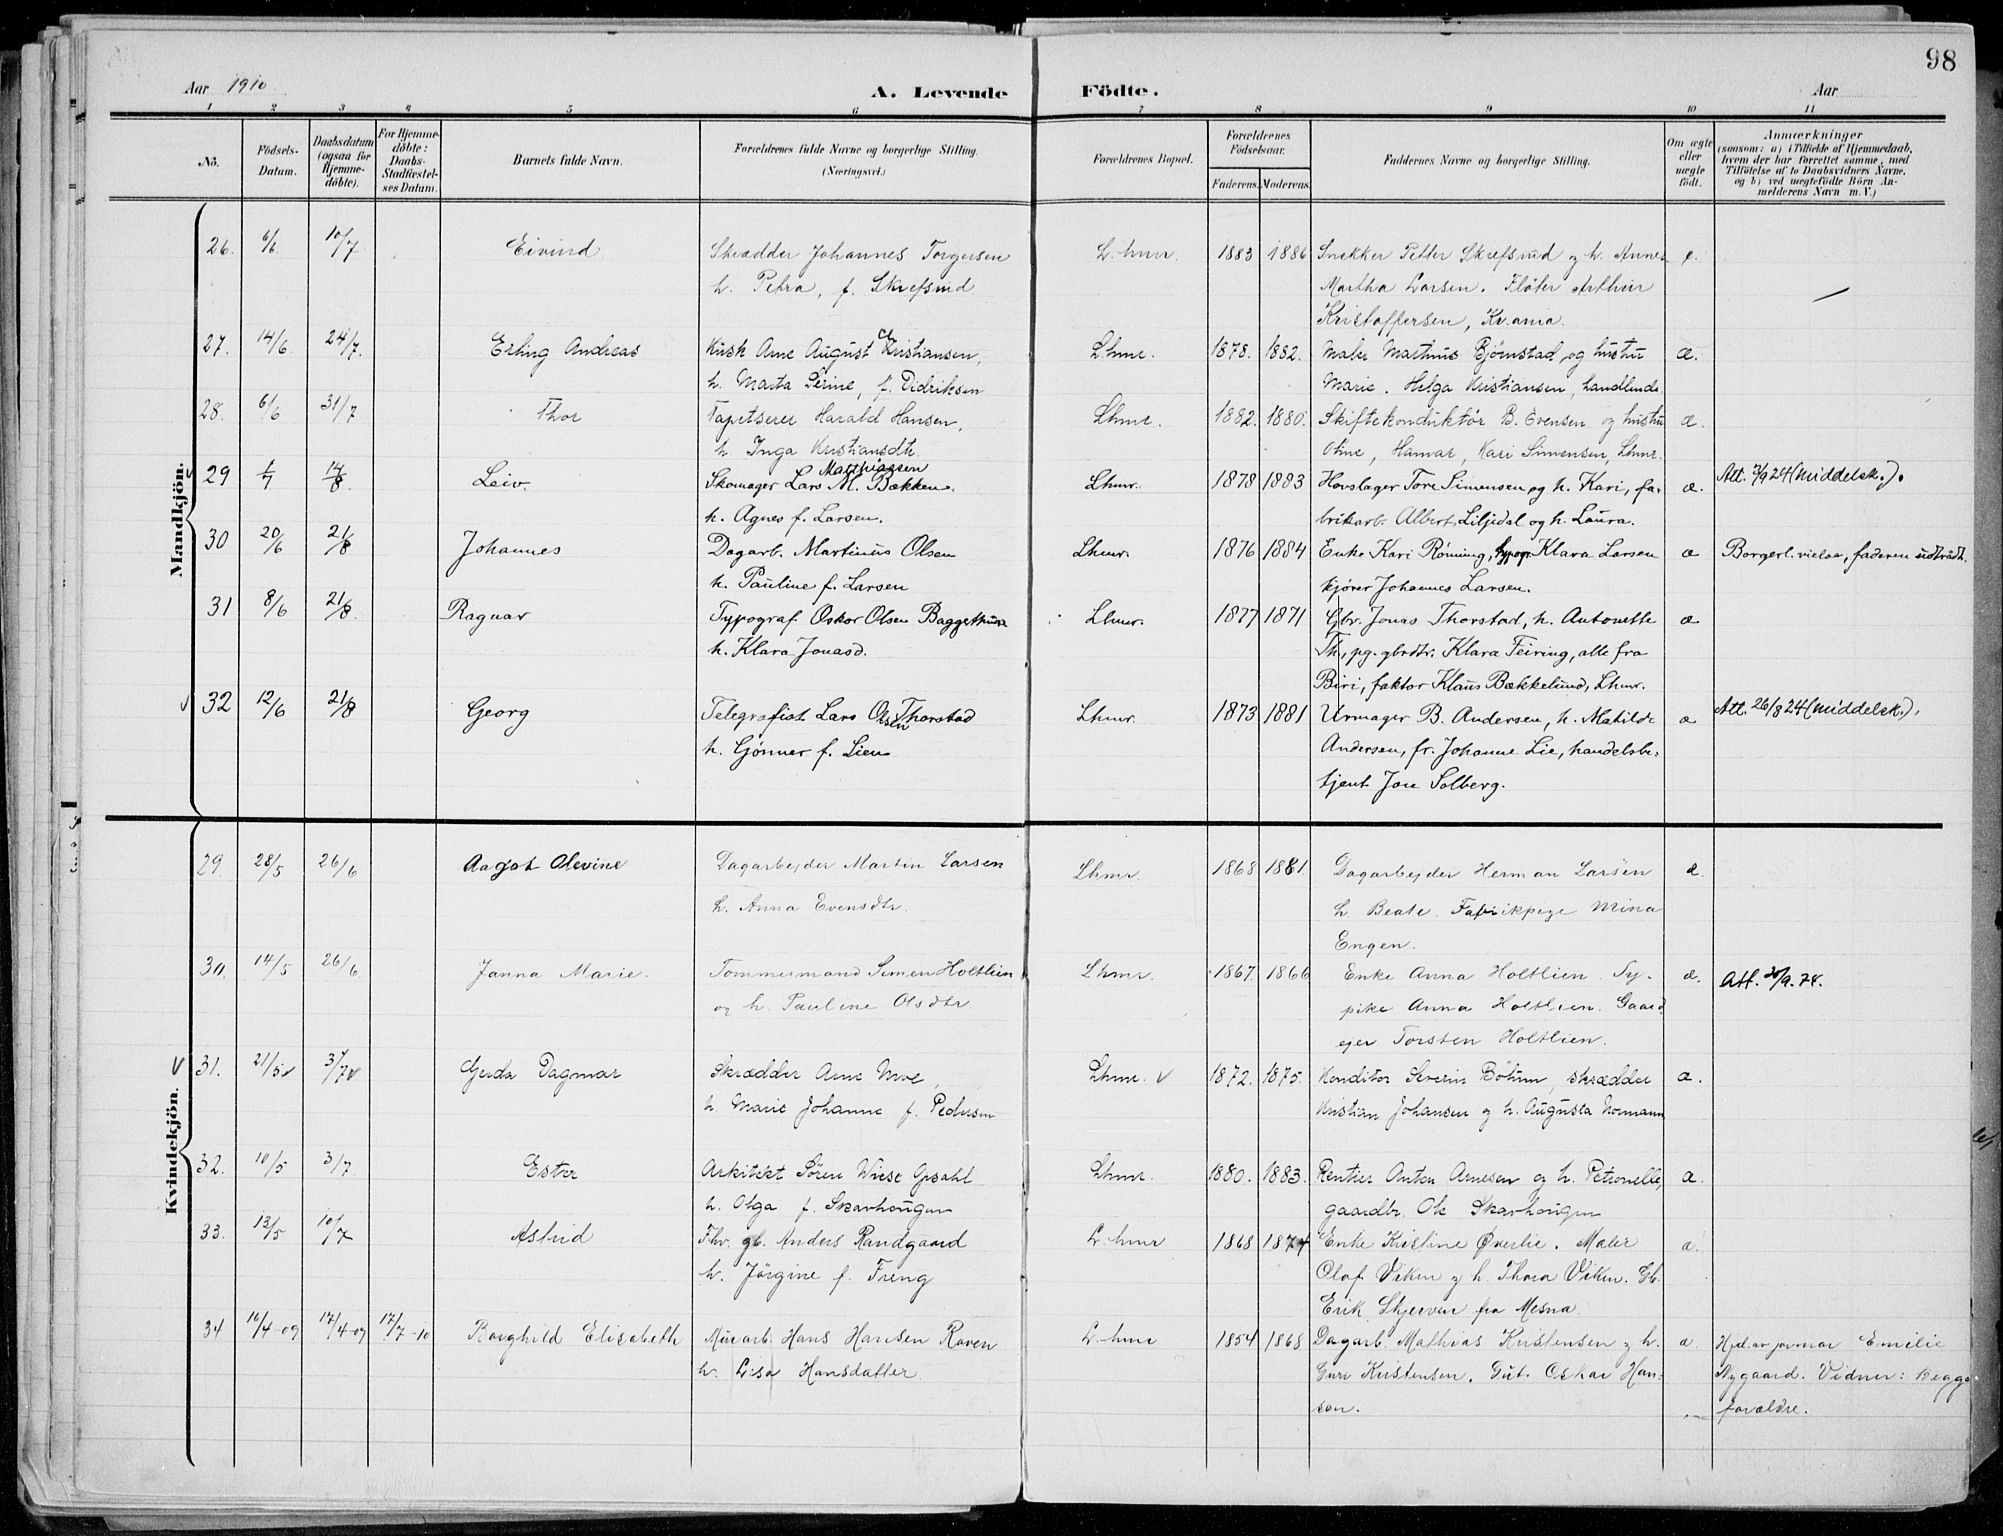 98
Aar 1910 A. Levende Födte. Aar
1 2 3 4 5 6 7 8 9 10 11
No. Födsels-Datum. Daabsdatum (ogsaa for Hjemmedöbte). For Hjemmedöbte: Daabs-Stadfæstelses Datum. Barnets fulde Navn. Forældrenes fulde Navne og borgerlige Stilling. (Næringsvei.) Forældrenes Bopæl. Forældrenes Födselsaar. Faderens. Moderens. Faddernes Navne og borgerlige Stilling. Om ægte eller uægte födt. Anmærkninger (saasom: a) i Tilfælde af Hjemmedaab, hvem der har forrettet samme, med Tilföielse af to Daabsvidners Navne, og b) ved uægtefödte Börn Anmelderens Navn m. V.)
Mandkjön.
26. 6/6 10/7 Eivind Skrædder Johannes Torgersen L.hmr. 1883 1886 Snekker Petter Skrefsrud og h. Anne- e.
h. Petra, f. Skrefsrud Martha Larsen. Fløter Arthur
Kristoffersen, Kr.ania.
27. 14/6 24/7. Erling Andreas Kusk Arne August Kristiansen, Lhmr. 1878. 1882. Maler Martinus Bjørnstad og hustru æ.
h. Marta Perine, f. Didriksen Marie. Helga Kristiansen, handlende
28. 6/6 31/7 Thor Tapetserer Harald Hansen, Lhmr. 1882. 1880. Skiftekonduktør B. Evensen og hustru æ.
h. Inga Kristiansdtr. Oline, Hamar, Kari Simensen, Lhmr.
Matthiassen
29 1/7 14/8 Leiv. Skomager Lars M. Bækken. Lhmr. 1878 1883 Hovslager Tore Simensen og h. Kari, fa- æ. Att. 3/9 24 (middelsk.).
h. Agnes f. Larsen. brikarb. Albert Liljedal og h. Laura.
30 20/6 21/8 Johannes Dagarb. Martinus Olsen Lhmr. 1876 1884 Enke Kari Rønning, typogr. Klara Larsen æ Borgerl. vielse, faderen udtrådt.
h. Pauline f. Larsen kjører Johannes Larsen.
31 8/6 21/8 Ragnar Typograf Oskar Olsen Baggethun Lhmr. 1877 1871 Gbr. Jonas Thorstad, h. Antonette æ
h. Klara Jonasd. Th., pg. gbrdtr. Klara Teiring, alle fra
Biri, faktor Klaus Bækkelund, Lhmr.
32 12/6 21/8 Georg Telegrafist Lars Olsen Thorstad Lhmr. 1873 1881 Urmager B. Andersen, h. Matilde æ Att. 26/8 24 (middelsk.).
h. Gjønner f. Lien Andersen, fr. Johanne Lie, handelsbe-
tjent Jon Solberg.
Kvindekjön.
29. 28/5 26/6 Aagot Olevine Dagarbejder Martin Larsen Lhmr. 1868 1881. Dagarbejder Herman Larsen æ.
h. Anna Evensdtr. h Beate. Fabrikpige Mina
Engen.
30. 14/5 26/6. Janna Marie. Tommermand Simen Holtlien Lhmr. 1867. 1866 Enke Anna Holtlien. Sy- æ. Att. 20/9.74.
og h. Pauline Olsdtr. pike Anna Holtlien. Gaard
ejer Torsten Holtlien.
31. 21/5 3/7 Gerda Dagmar Skrædder Arne Moe, Lhmr. 1872. 1875. Konditor Severin Bøhm, skrædder æ.
h. Marie Johanne f. Pedersen Kristian Johansen og h. Augusta Normann
32. 10/5 3/7 Ester Arkitekt Søren Wiese Opsahl Lhmr. 1880. 1883. Rentier Anton Arnesen og h. Petronelle, æ.
h. Olga f. Skarhougen gaardbr. Ole Skarhougen
33. 13/5 10/7 Astrid Fhv. gb. Anders Randgaard L.hmr 1868 1874 Enke Kristine Øverlie. Maler æ.
h. Jörgine f. Freng Olaf Viken og h. Thora Viken. Gb.
Erik Skjerven fra Mesna.
34 16/4-09 17/4-09 17/7-10 Borghild Elisabeth Murarb. Hans Hansen Raven L.hmr 1854 1868 Dagarb. Mathias Kristensen og h. æ. Hjd. av jormor Emilie
h. Lisa Hansdatter. Guri Kristensen. Gut. Oskar Han- Nygaard. Vidner: Begge
sen. forældre.